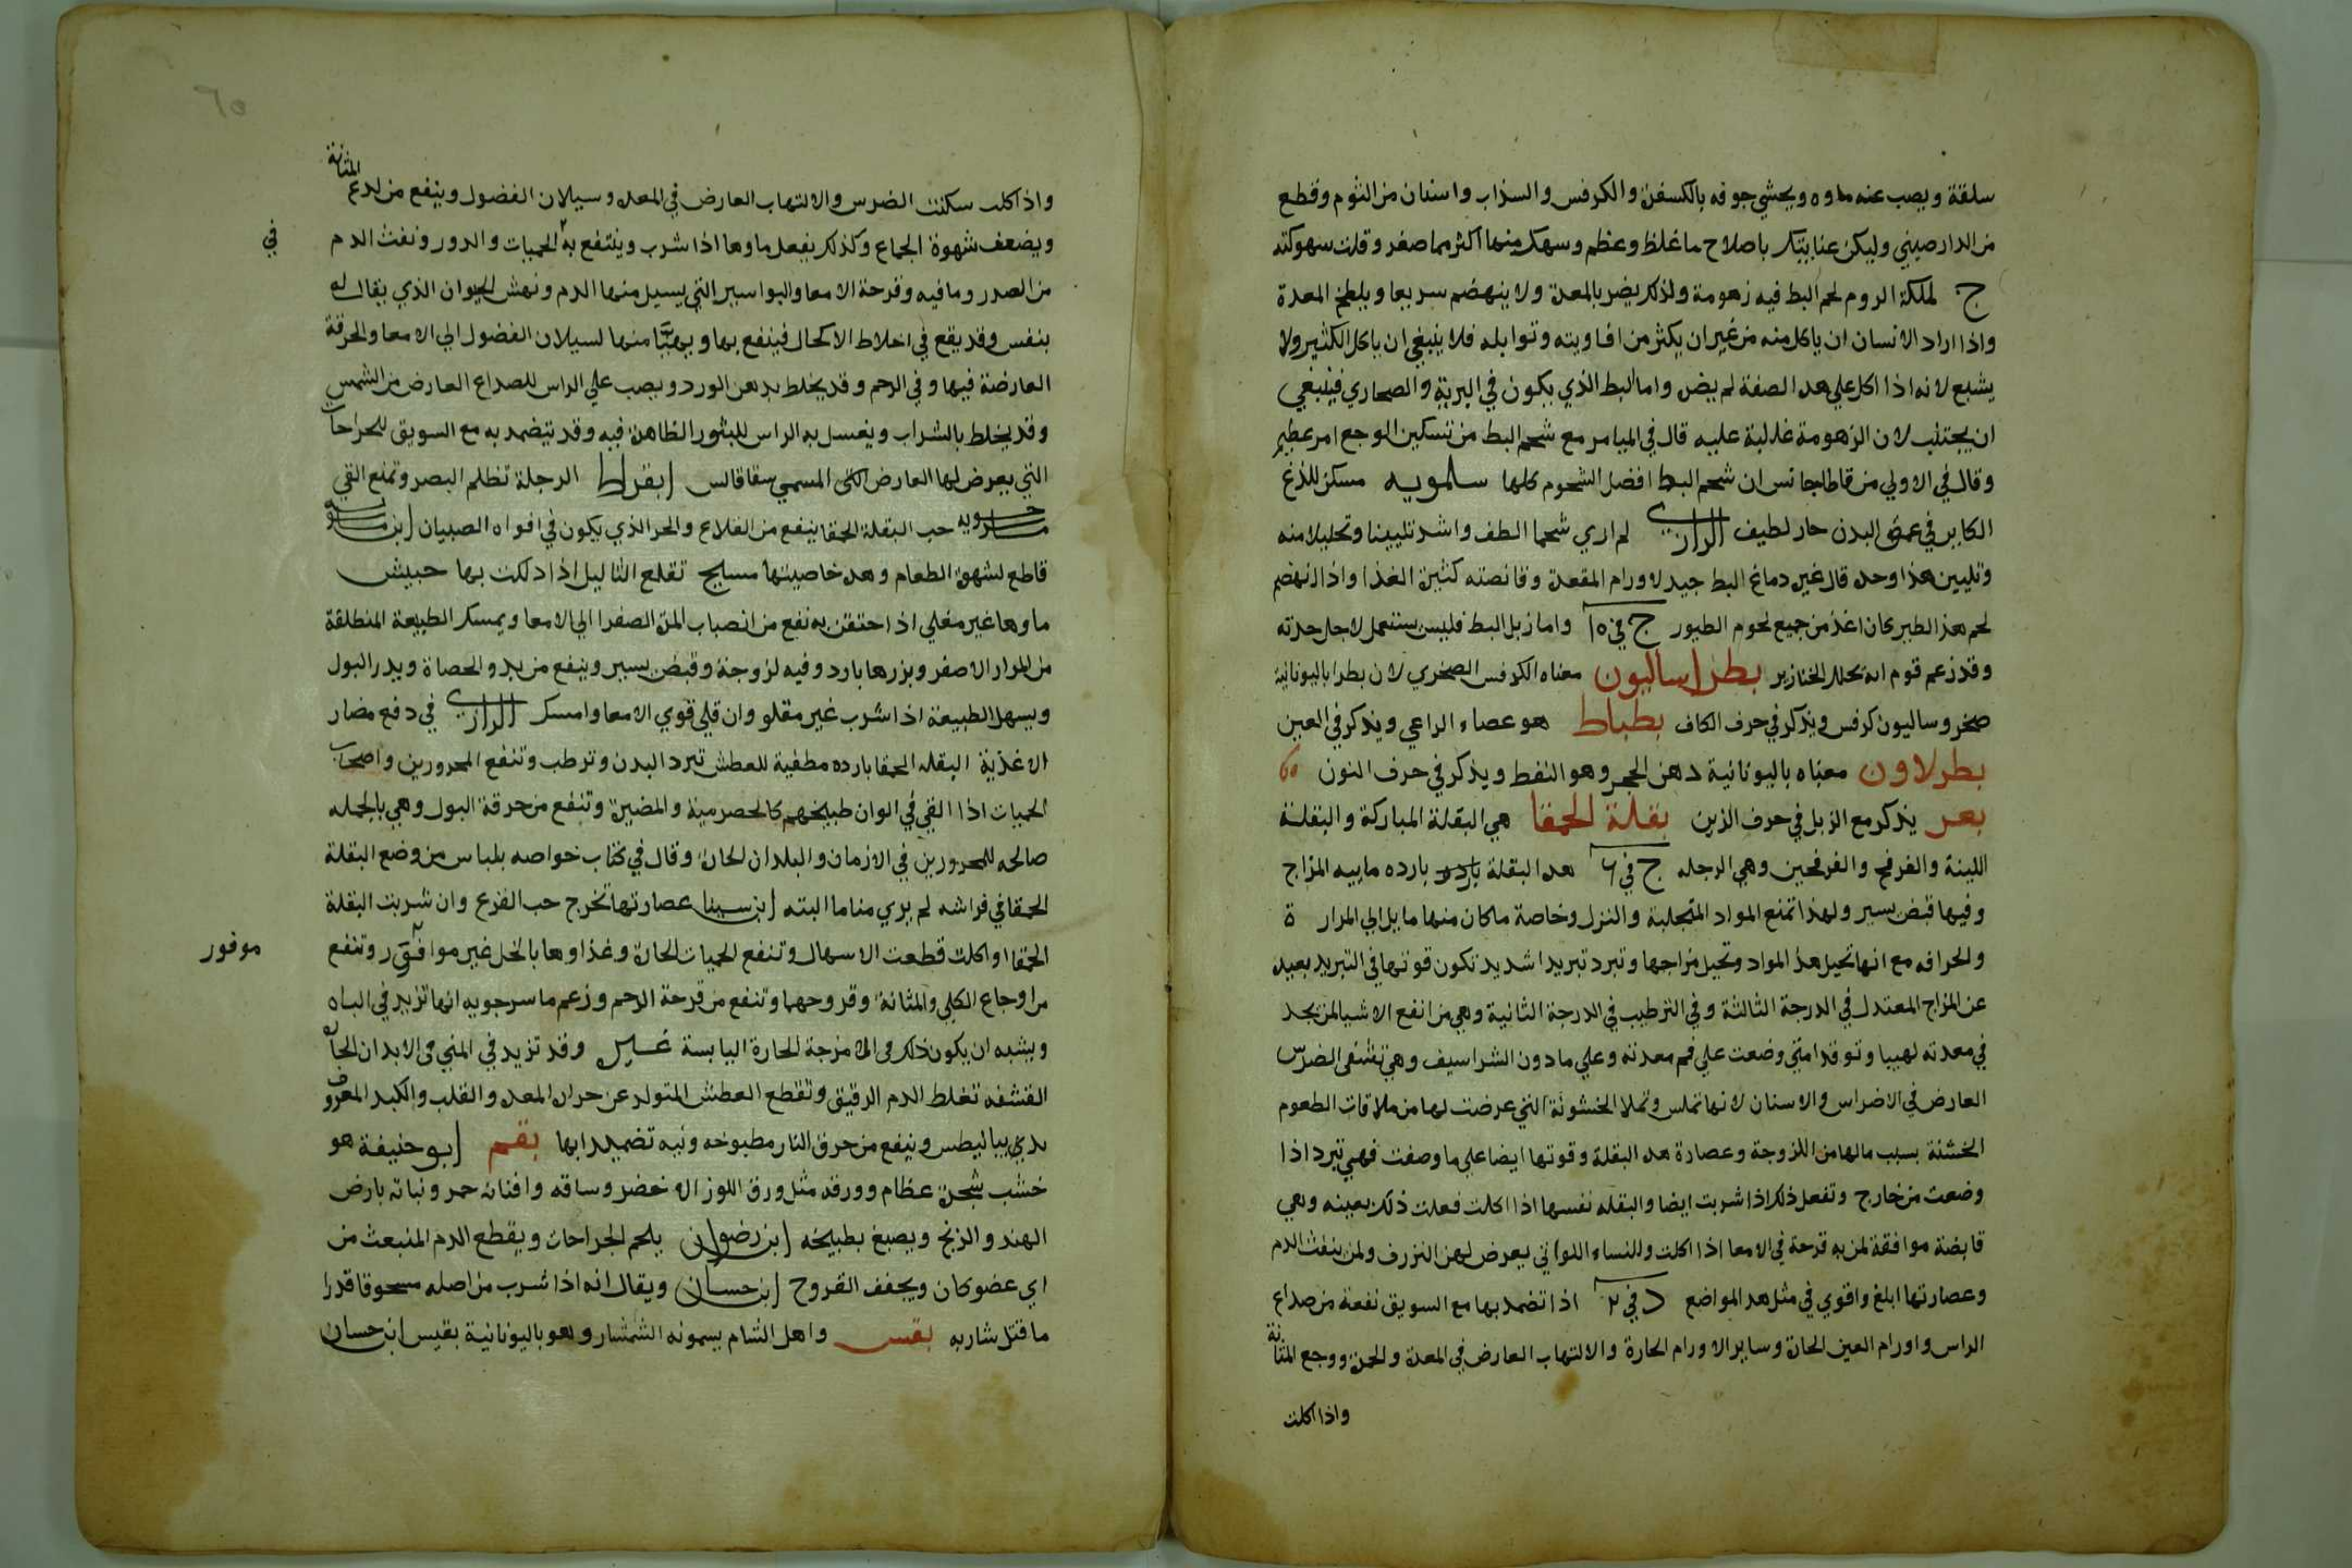 سلقة ويصب عنه ماوه ويحشي جوفه بالكسفرة والكرفس والسذاب واسنان من الثوم وقطع
من الدارصيني وليكن عنايتك باصلاح ما غلظ وعظم وسهك منها اكثر مما صغر وقلت سهوكته
ج لملكة الروم لحم البط فيه زهومة ولذلك يضر بالمعدة ولا ينهضم سريعا ويلطخ المعدة
واذا اراد الانسان ان ياكل منه من غير ان يكثر من افاويته وتوابله فلا ينبغي ان ياكل الكثير ولا
يشبع لانه اذا اكل علي هذه الصفة لم يضر واما البط الذي يكون في البرية والصحاري فينبغي
ان يجتنب لان الزهومة غالبة عليه قال في الميامر مع شحم البط من تسكين الوجع امر عظيم
وقال في الاولي من قاطاجانس ان شحم البط افضل الشحوم كلها سلمويه مسكن للذع
الكاين في عمق البدن حار لطيف الرازي لم اري شحما الطف واشد تليينا وتحليلا منه
وتليين هذا وحده قال غيره دماغ البط جيد لاورام المقعدة وقانصته كثيرة الغذا واذا انهضم
لحم هذا الطير كان اغذ من جميع لحوم الطيور ج في ١٥ واما زبل البط فليس يستعمل لاجل حدته
وقد زعم قوم انه يحلل الخنازير بطراساليون معناه الكرفس الصخري لان بطرا باليونانية
صخر وساليون كرفس ويذكر في حرف الكاف بطباط هو عصاء الراعي ويذكر في العين
بطرلاون معناه باليونانية دهن الحجر وهو النفط ويذكر في حرف النون
بعر يذكر مع الزبل في حرف الزين بقلة الحمقا هي البقلة المباركة والبقلة
اللينة والفرفح والفرفحين وهي الرجله ج في ٦ هذه البقلة بارده مابيه المزاج
وفيها قبض يسير ولهذا تمنع المواد المتجلبة والنزل وخاصة ما كان منها مايل الي المرار ة
والحرافه مع انها تحيل هذه المواد وتحيل مزاجها وتبرد تبريدا شديد تكون قوتها في التبريد بعيدة
عن المزاج المعتدل في الدرجة الثالثة وفي الترطيب في الدرجة الثانية وهي من انفع الاشيا لمن يجد
في معدته لهيبا وتوقدا متي وضعت علي فم معدته وعلي ما دون الشراسيف وهي تشفي الضرس
العارض في الاضراس والاسنان لانها تملس وتملا الخشونة التي عرضت لها من ملاقات الطعوم
الخشنة بسبب مالها من اللزوجة وعصارة هذه البقلة وقوتها ايضا علي ما وصفت فهي تبرد اذا
وضعت من خارج وتفعل ذلك اذا شربت ايضا والبقله نفسها اذا اكلت فعلت ذلك بعينه وهي
قابضة موافقة لمن به قرحة في الامعا اذا اكلت وللنساء اللواتي يعرض لهن النزرف ولمن ينفث الدم
وعصارتها ابلغ واقوي في مثل هذه المواضع د في ٢ اذا تضمد بها مع السويق نفعة من صداع
الراس واورام العين الحارة وساير الاورام الحارة والالتهاب العارض في المعدة والحمرة ووجع المثانة
واذا اكلت
٦٥
واذا اكلت سكنت الضرس والالتهاب العارض في المعدة وسيلان الفضول وينفع من لدع المثانة
ويضعف شهوة الجماع وكذلك يفعل ماوها اذا شرب وينتفع به الحميات والدور ونفث الدم
في
من الصدر وما فيه وقرحة الامعا والبواسير التي يسيل منها الدم ونهش الحيوان الذي يقال له
بنفس وقد يقع في اخلاط الاكحال فينفع بها ويهيّا منها لسيلان الفضول الي الامعا والحرقة
العارضة فيها وفي الرحم وقد يخلط بدهن الورد ويصب علي الراس للصداع العارض من الشمس
وقد يخلط بالشراب ويغسل به الراس للبثور الظاهرة فيه وقد يتضمد به مع السويق للجراحات
التي يعرض لها العارض المسمي سقاقالس ابقراط الرجلة تظلم البصر وتمنع القي
حب البقلة الحمقا ينفع من القلاع والحر الذي يكون في افواه الصبيان ابن ماسويه
قاطع لشهوة الطعام وهذه خاصيتها مسايح تقلع الثاليل اذا دلكت بها حبيش
ماوها غير مغلي اذا احتقن به نفع من انصباب المرة الصفرا الي الامعا ويمسك الطبيعة المنطلقة
من المرار الاصفر وبزرها بارد وفيه لزوجة وقبض يسير وينفع من بدو الحصاة ويدر البول
ويسهل الطبيعة اذا شرب غير مقلو وان قلي قوي الامعا وامسك الرازي في دفع مضار
الاغذية البقله الحمقا بارده مطفية للعطش تبرد البدن وترطب وتنفع المحرورين واصحاب
الحميات اذا القي في الوان طبيخهم كالحصرمية والمضيرة وتنفع من حرقة البول وهي بالجمله
صالحه للمحرورين في الازمان والبلدان الحارة وقال في كتاب خواصه بلباس من وضع البقلة
الحمقا في فراشه لم يري مناما البته ابن سينا عصارتها تخرج حب القرع وان شربت البقلة
الحمقا او اكلت قطعت الاسهال وتنفع الحميات الحارة وغذاوها بالخل غير موافق وتنفع
موفور
من اوجاع الكلي والمثانة وقروحهما وتنفع من قرحة الرحم وزعم ماسرجويه انها تزيد في الباه
ويشبه ان يكون ذلك في الامزجة الحارة اليابسة غيره وقد تزيد في المني في الابدان الحارة
القشفه تغلط الدم الرقيق وتقطع العطش المتولد عن حرارة المعدة والقلب والكبد المعروف
بديابيطس وينفع من حرق النار مطبوخه ونيه تضميدا بها بقم ابو حنيفة هو
خشب شجرة عظام وورقه مثل ورق اللوز الاخضر وساقه وافنانه حمر ونباته بارض
الهند والزنج ويصبغ بطبيخه ابن رضوان يلحم الجراحات ويقطع الدم المنبعث من
اي عضو كان ويجفف القروح ابن حسان ويقال انه اذا شرب من اصله مسحوقا قدرا
ما قتل شاربه بقس واهل الشام يسمونه الشمشار وهو باليونانية بقيس ابن حسان